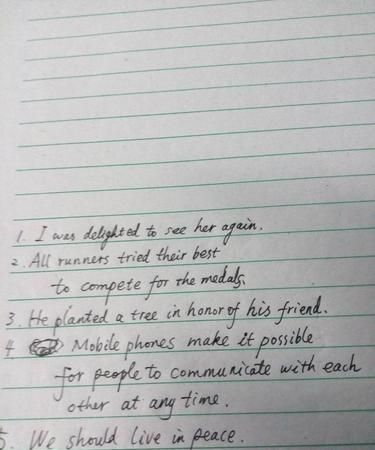 1. I was delighted to see her again.
2. All runners tried their best
to compete for the medals.
3. He planted a tree in honor of his friend.
4 Mobile phones make it possible
for people to communicate with each
other at any time.
5. We should live in peace.